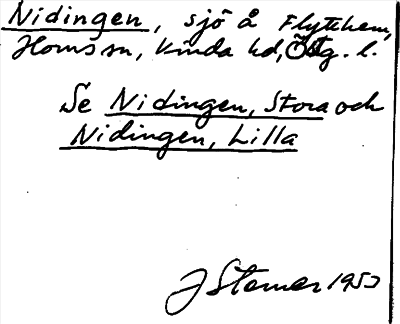 Nidingen, sjö å Flytthem,
Horns sn, Kinda hd, Östg. l.
Se Nidingen, Stora och
Nidingen, Lilla
J Sterner 1953